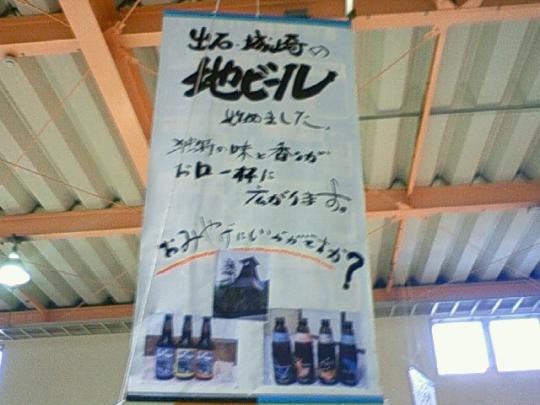 出石・城崎の
地ビール
始めました。
独特の味と香りが
お口一杯に
広がります。
おみやげにいかがですか?